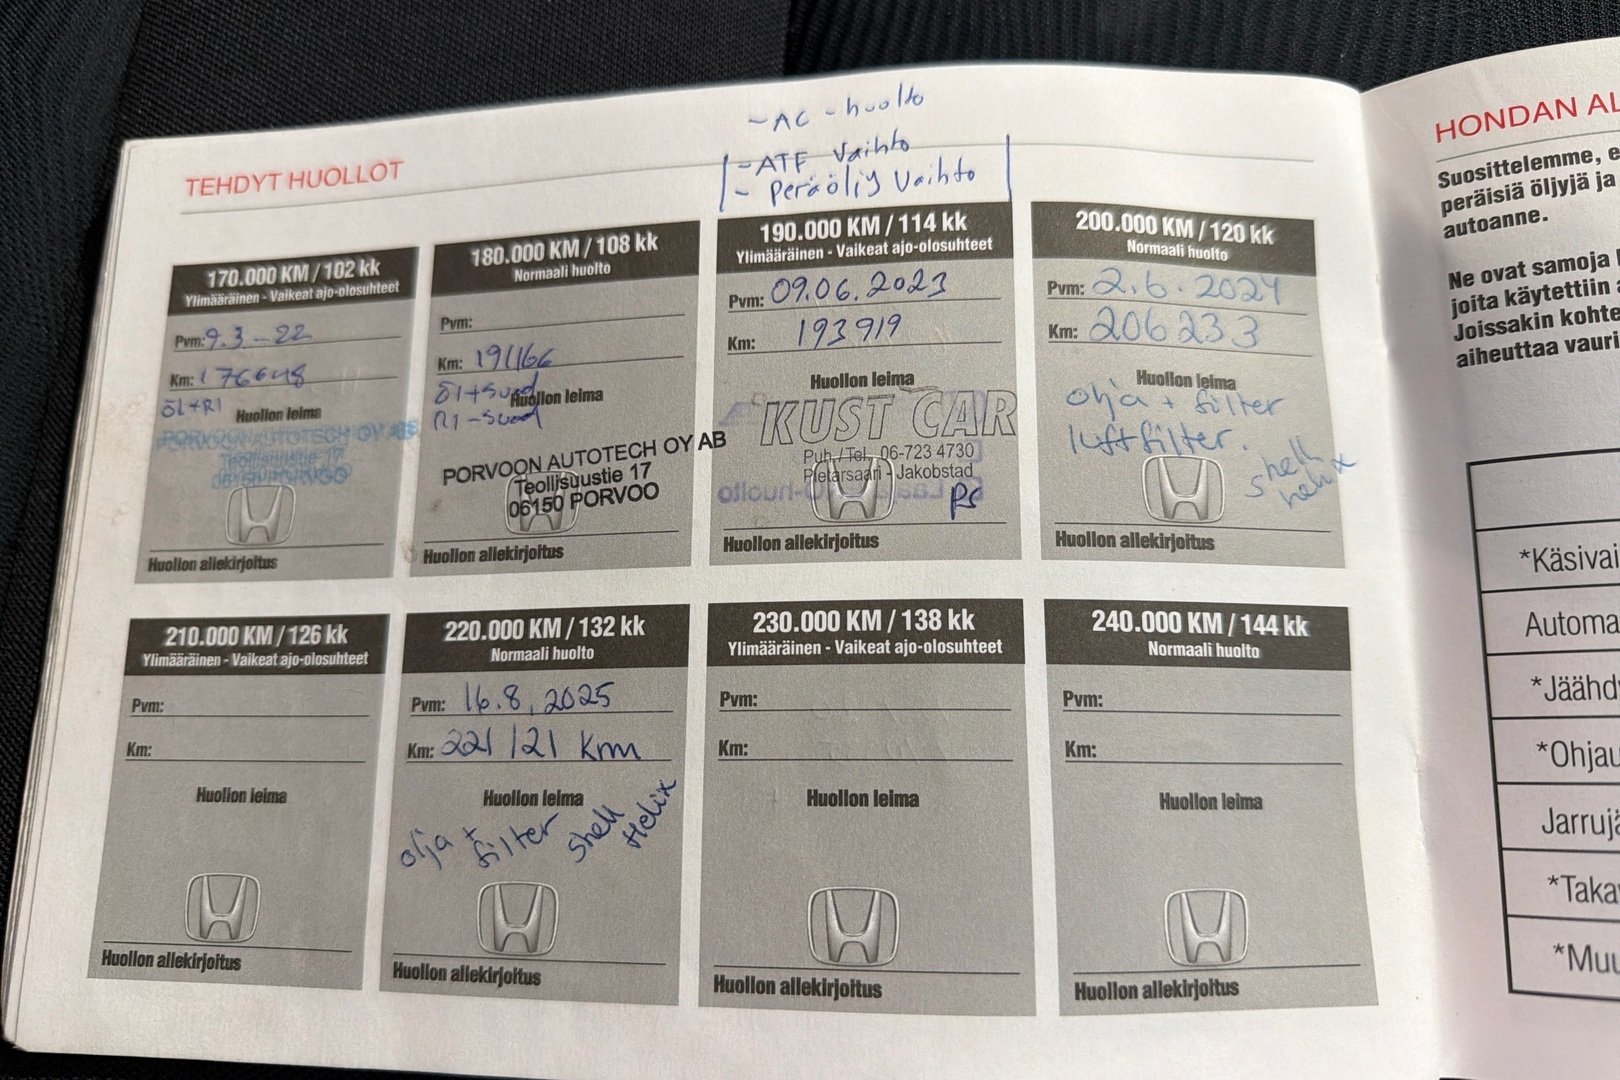 - AC - huolto
- ATF vaihto
- Peräöljy vaihto
TEHDYT HUOLLOT
170.000 KM / 102 kk
Ylimääräinen - Vaikeat ajo-olosuhteet
Pvm: 9.3-22
Km: 176648
öl+R1
Huollon leima
PORVOON AUTOTECH OY AB
Teollisuustie 17
06150 PORVOO
Huollon allekirjoitus
180.000 KM / 108 kk
Normaali huolto
Pvm:
Km: 191166
öl+suod
Huollon leima
R1-suod
PORVOON AUTOTECH OY AB
Teollisuustie 17
06150 PORVOO
Huollon allekirjoitus
190.000 KM / 114 kk
Ylimääräinen - Vaikeat ajo-olosuhteet
Pvm: 09.06.2023
Km: 193919
Huollon leima
KUST CAR
Puh./Tel. 06-723 4730
Pietarsaari - Jakobstad
Huollon allekirjoitus
200.000 KM / 120 kk
Normaali huolto
Pvm: 2.6.2024
Km: 206233
Huollon leima
olja + filter
luftfilter.
shell
helix
Huollon allekirjoitus
210.000 KM / 126 kk
Ylimääräinen - Vaikeat ajo-olosuhteet
Pvm:
Km:
Huollon leima
Huollon allekirjoitus
220.000 KM / 132 kk
Normaali huolto
Pvm: 16.8.2025
Km: 221121 km
Huollon leima
olja + filter
shell
Helix
Huollon allekirjoitus
230.000 KM / 138 kk
Ylimääräinen - Vaikeat ajo-olosuhteet
Pvm:
Km:
Huollon leima
Huollon allekirjoitus
240.000 KM / 144 kk
Normaali huolto
Pvm:
Km:
Huollon leima
Huollon allekirjoitus
HONDAN AL
Suosittelemme, e
peräisiä öljyjä ja
autoanne.
Ne ovat samoja
joita käytettiin
Joissakin kohte
aiheuttaa vauri
*Käsivai
Automa
*Jäähd
*Ohjau
Jarrujä
*Taka
*Muu